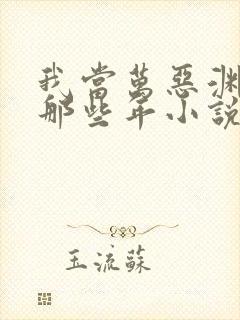 我當萬惡淵
那些年小說
玉流蘇